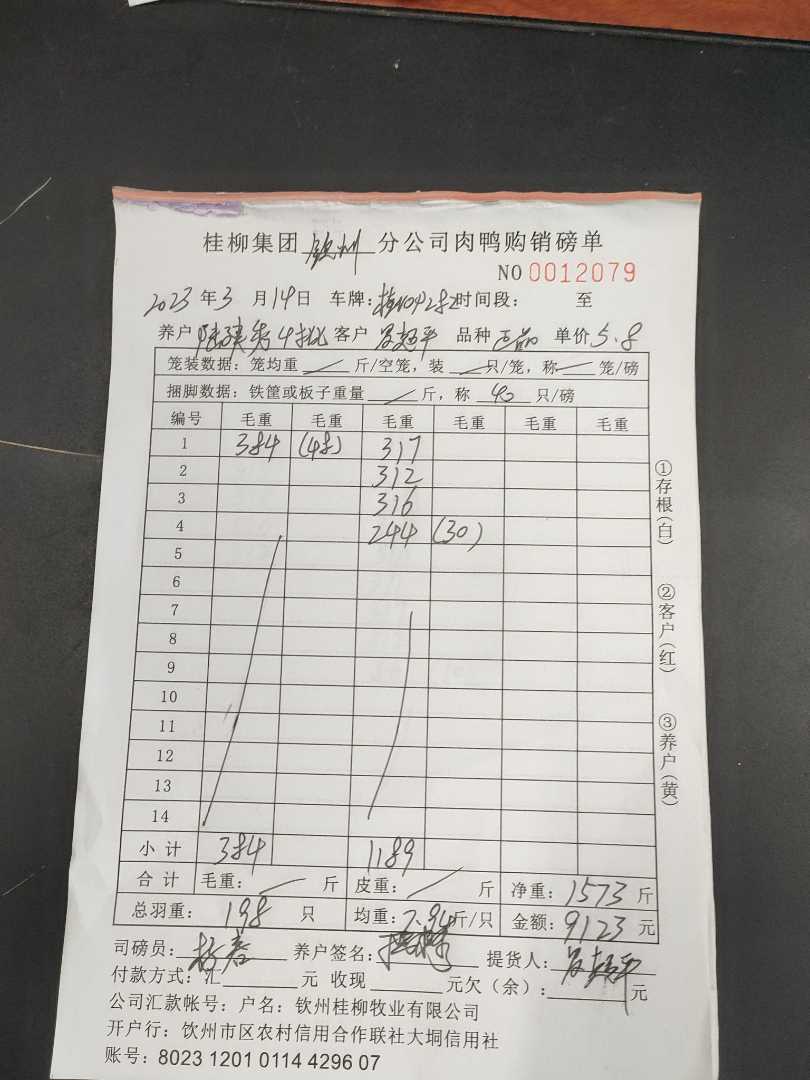 桂柳集团 钦州 分公司肉鸭购销磅单
NO 0012079
2023 年 3 月 14 日 车牌: 时间段: 至
养户 客户 品种 正品 单价 5.8
笼装数据: 笼均重 斤/空笼, 装 只/笼, 称 笼/磅
捆脚数据: 铁筐或板子重量 斤, 称 40 只/磅
编号 毛重 毛重 毛重 毛重 毛重 毛重
1 384 (48) 317
2 312
3 316
4 244 (30)
5
6
7
8
9
10
11
12
13
14
小计 384 1189
合计 毛重: 斤 皮重: 斤 净重: 1573 斤
总羽重: 198 只 均重: 7.94 斤/只 金额: 9123 元
司磅员: 养户签名: 提货人:
付款方式: 汇 元 收现 元欠(余): 元
公司汇款帐号: 户名: 钦州桂柳牧业有限公司
开户行: 钦州市区农村信用合作联社大垌信用社
账号: 8023 1201 0114 4296 07
①存根(白)
②客户(红)
③养户(黄)